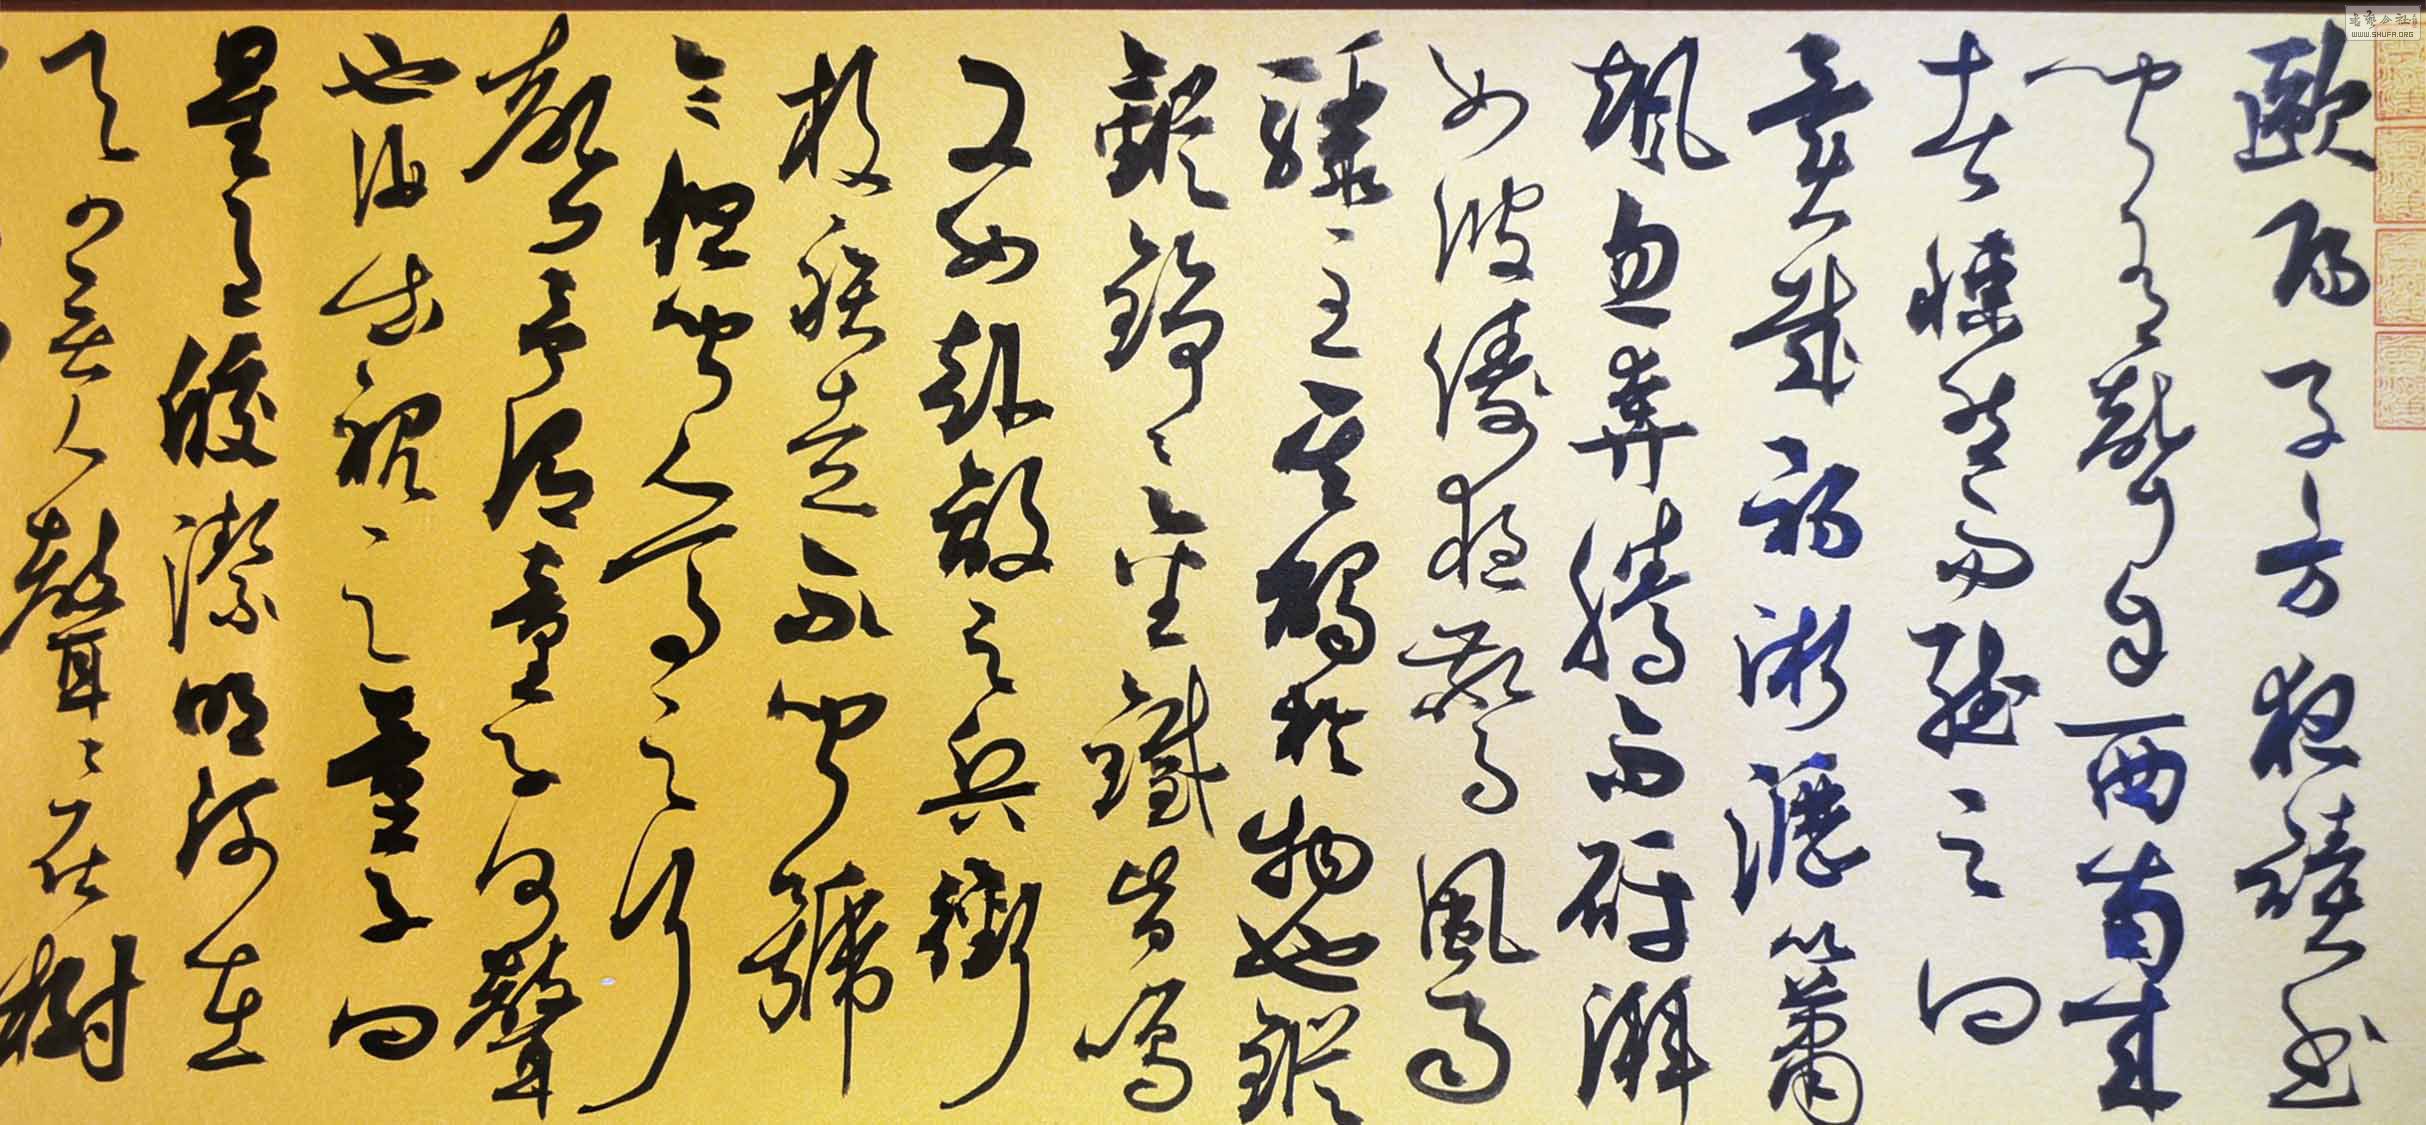 歐陽子方夜讀書
聞有聲自西南來
者悚然而聽之曰
異哉初淅瀝以蕭
颯忽奔騰而砰湃
如波濤夜驚風雨
驟至其觸於物也鏦
鏦錚〻金鐵皆鳴
又如赴敵之兵銜
枚疾走不聞號
令但聞人馬之行
聲予謂童子何聲
也汝出視之童子曰
星月皎潔明河在
天四無人聲〻在樹
WWW.SHUFA.ORG